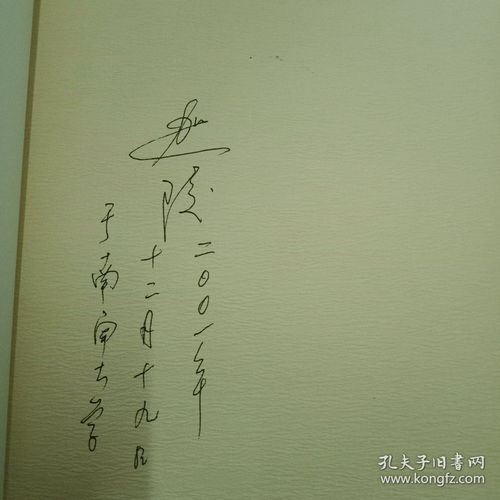 迦陵
二〇〇一年
十二月十九日
于南開大学
孔夫子旧书网
www.kongfz.com